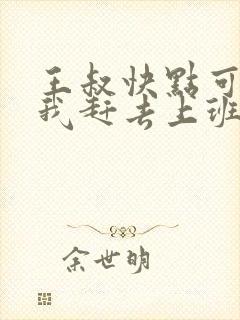 王叔快點可
我赶去上班
余世明